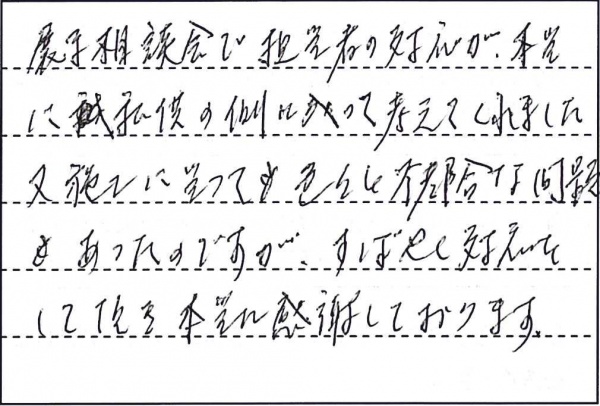 展示相談会で担当者の対応が、本当
に私供の側に立って考えてくれました
又施工に当っても色々と不都合な問題
もあったのですが、すばやく対応を
して頂き本当に感謝しております。